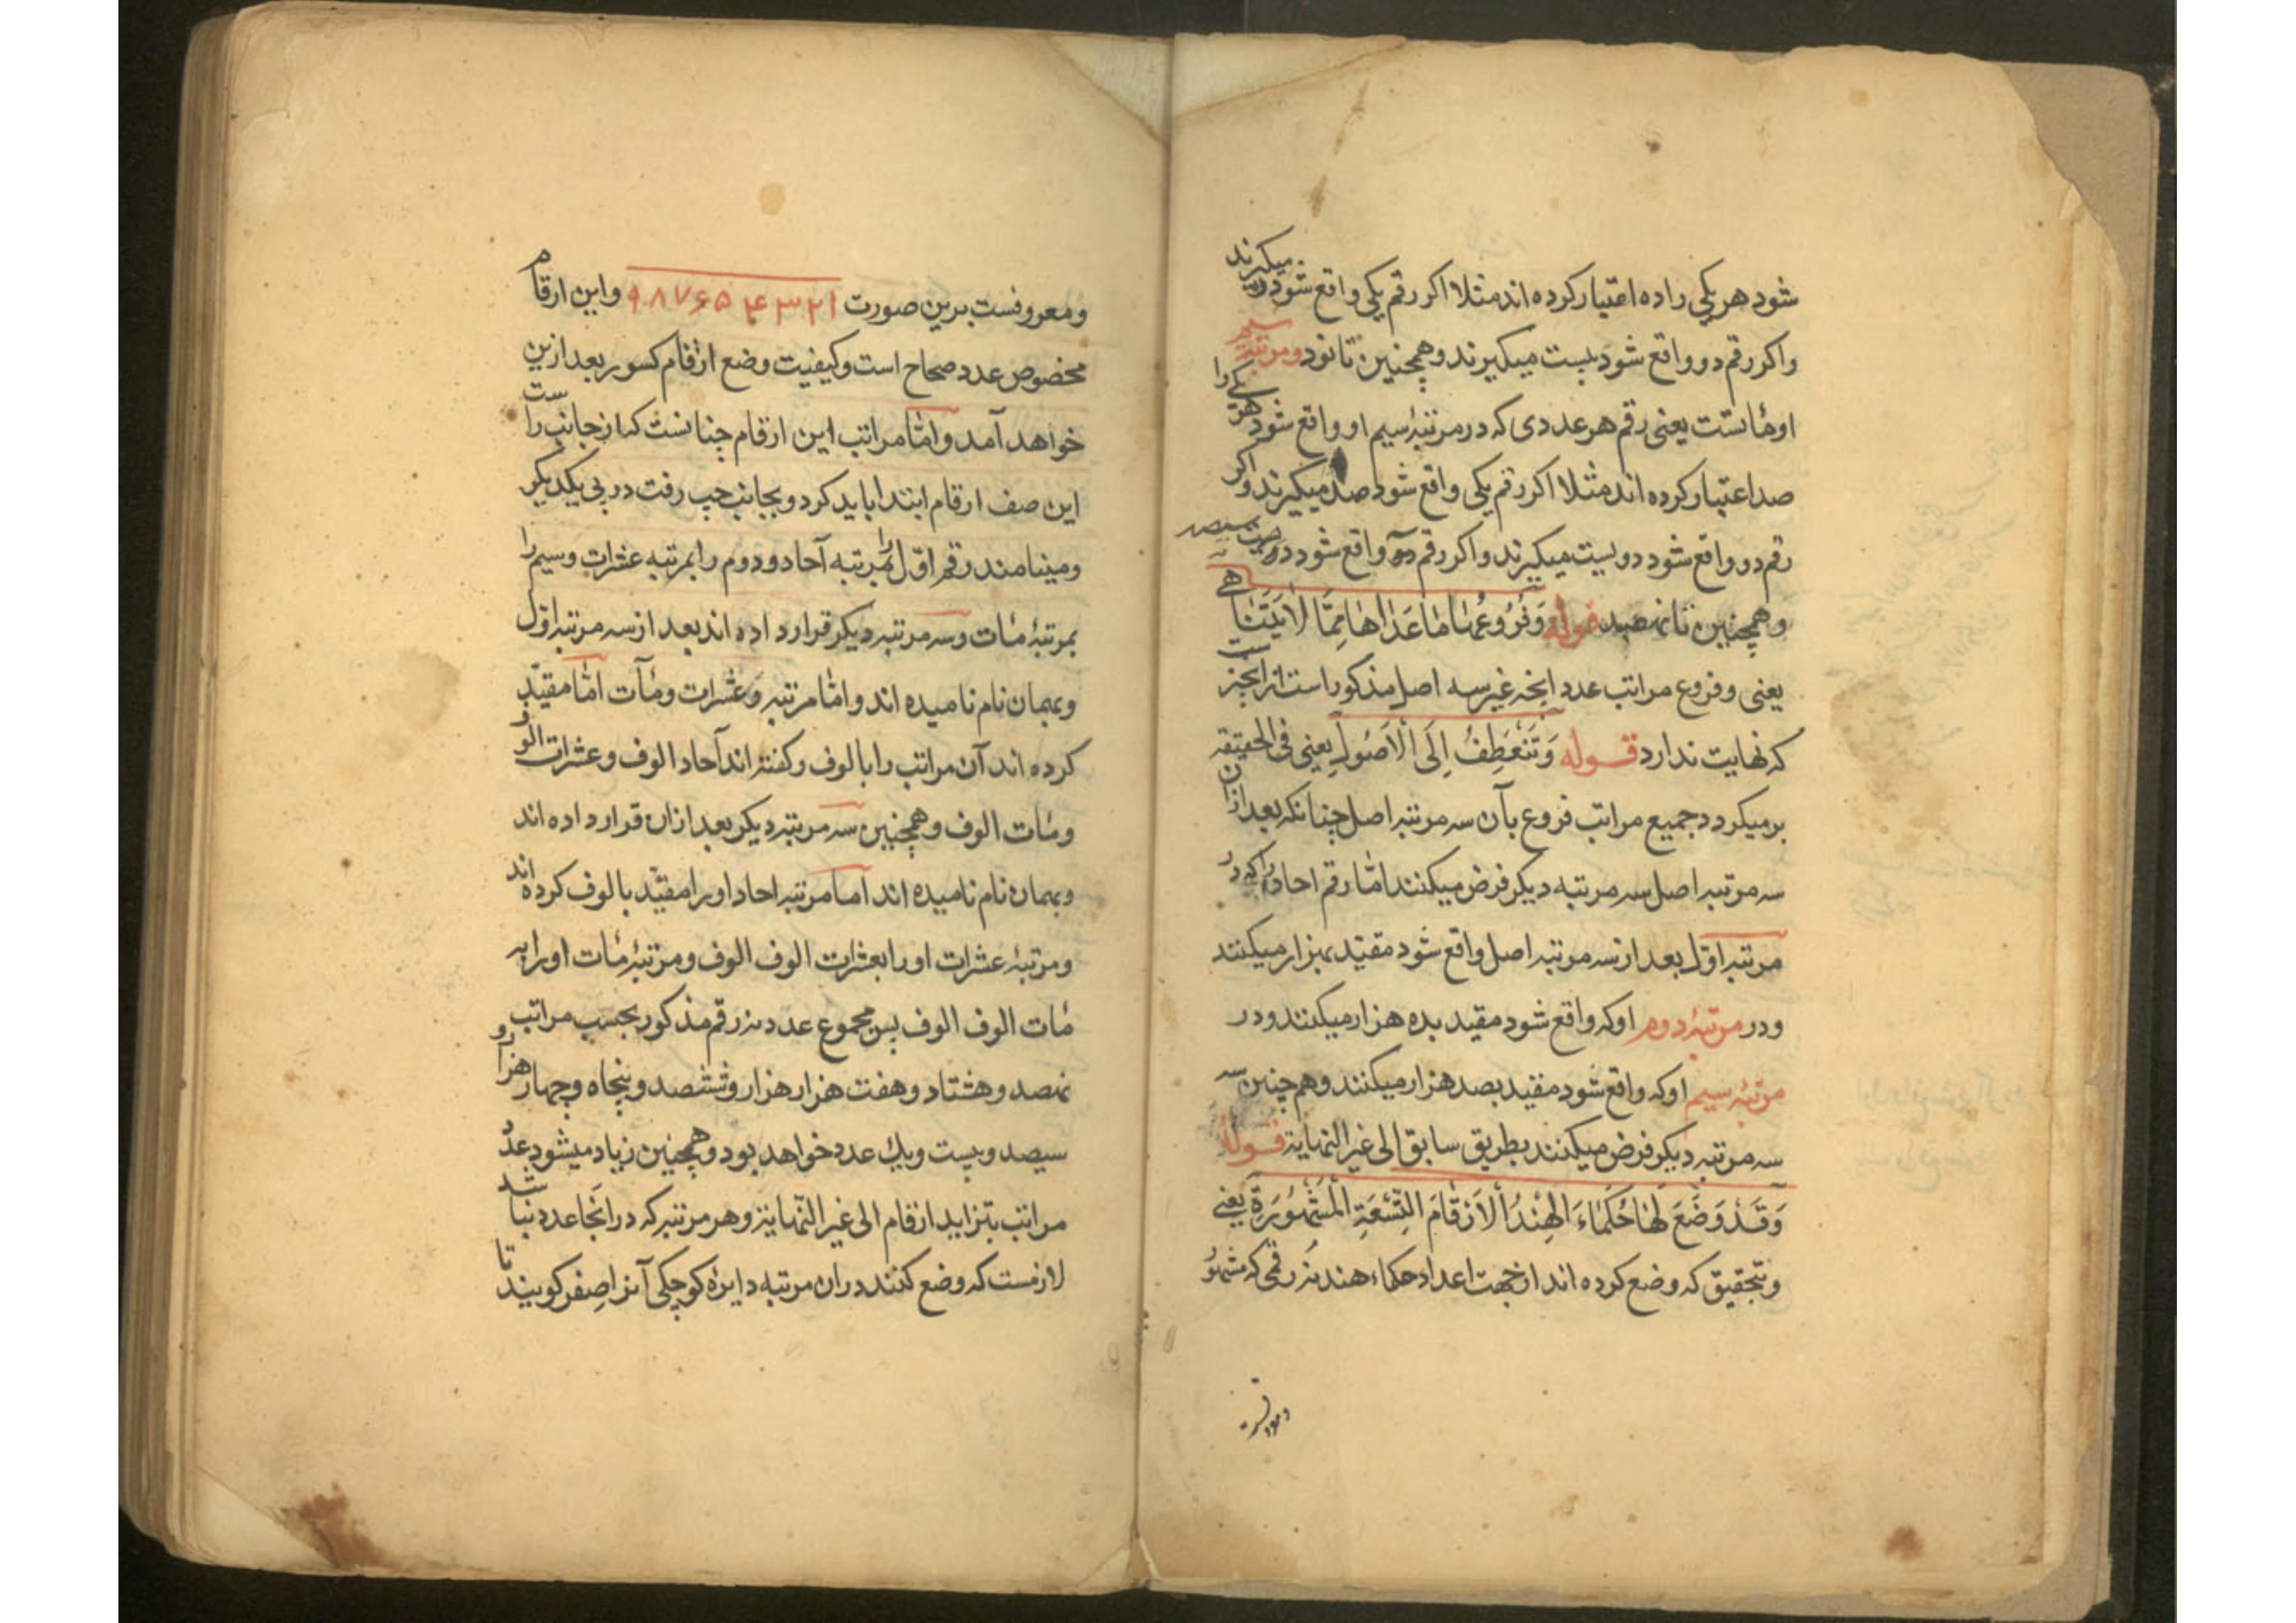 شود هر یکی را ده اعتبار کرده اند مثلا اکر رقم یکی واقع شود ده میکیرند
واکر رقم دو واقع شود بیست میکیرند وهمچنین تا نود ومرتبه سیم
او مأتست یعنی رقم هر عددی که در مرتبهٔ سیم او واقع شود هر یکی را
صد اعتبار کرده اند مثلا اکر رقم یکی واقع شود صد میکیرند واکر
رقم دو واقع شود دویست میکیرند واکر رقم سه واقع شود سیصد
وهمچنین تا نهصد قوله وَفُرُوعُهٰا مٰا عَدٰاهٰا مِمَّا لٰا یَتَنٰاهی
یعنی وفروع مراتب عدد انچه غیر سه اصل مذکور است از انچیز
که نهایت ندارد قوله وَتَنْعَطِفُ اِلَی الْاُصُولِ یعنی فی الحقیقه
برمیکردد جمیع مراتب فروع بآن سه مرتبه اصل چنانکه بعد ازان
سه مرتبه اصل سه مرتبه دیکر فرض میکنند امٰا رقم احاد را که در
مرتبه اوّل بعد از سه مرتبه اصل واقع شود مقیّد بهزار میکنند
ودر مرتبهٔ دوم او که واقع شود مقید بده هزار میکنند ودر
مرتبهٔ سیم او که واقع شود مقید بصد هزار میکنند وهم چنین سه
سه مرتبه دیکر فرض میکنند بطریق سابق الی غیر النهایة قوله
وَقَدْ وَضَعَ لَهٰا حُکَمٰاءُ الْهِنْدِ الْاَرْقٰامَ التِّسْعَةَ الْمَشْهُوُرَةَ یعنی
وبتحقیق که وضع کرده اند از جهت اعداد حکماء هند نه رقمی که مشهور
ومعروفست
ومعروفست برین صورت ۱ ۲ ۳ ۴ ۵ ۶ ۷ ۸ ۹ واین ارقام
مخصوص عدد صحاح است وکیفیت وضع ارقام کسور بعد ازین
خواهد آمد وامٰا مراتب این ارقام چنانست که از جانب راست
این صف ارقام ابتدا باید کرد وبجانب چپ رفت در پی یکدیکر
ومینامند رقم اوّل را بمرتبه آحاد ودوم را بمرتبه عشرات وسیم را
بمرتبهٔ مئات وسه مرتبه دیکر قرار داده اند بعد از سه مرتبه اوّل
وبهمان نام نامیده اند وامٰا مرتبه وعشرات ومأت امٰا مقیّد
کرده اند آن مراتب را بالوف وکفته اند آحاد الوف وعشرات الوف
ومئات الوف وهمچنین سه مرتبه دیکر بعد ازان قرار داده اند
وبهمان نام نامیده اند اما مرتبه احاد او را مقیّد بالوف کرده اند
ومرتبهٔ عشرات او را بعشرات الوف الوف ومرتبهٔ مئات او را به
مئات الوف الوف پس مجموع عدد نه رقم مذکور بحسب مراتب
نهصد وهشتاد وهفت هزار هزار وششصد وپنجاه وچهار هزار و
سیصد وبیست ویك عدد خواهد بود وهمچنین زیاد میشود عدد
مراتب بتزاید ارقام الی غیر النّهایة وهر مرتبه که در انجا عدد نباشد
لازمست که وضع کنند در ان مرتبه دایره کوچکی آنرا صفر کویند تا